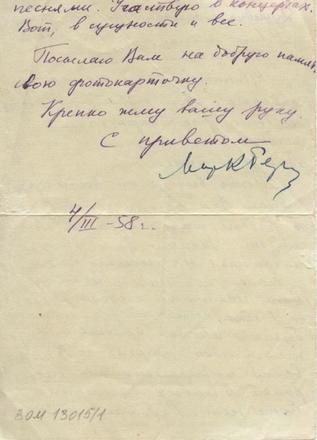 песнями. Участвую в концертах.
Вот, в сущности и все.
Посылаю Вам на добрую память
свою фотокарточку.
Крепко жму вашу руку.
С приветом
4/III -58 г.
ЗОМ 13015/1